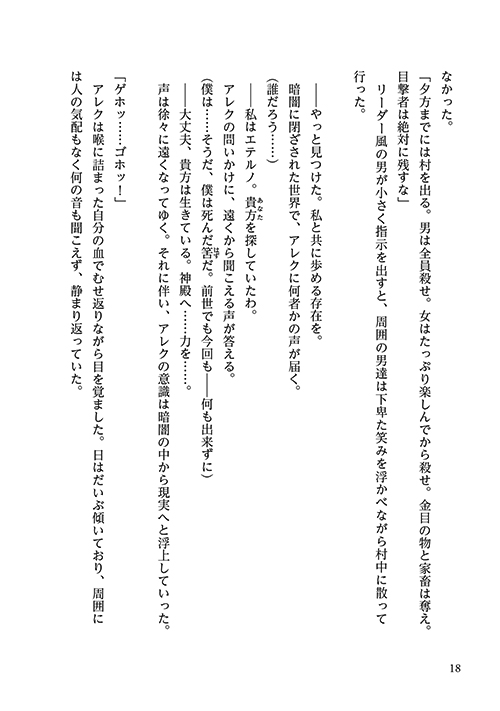 なかった。
「夕方までには村を出る。男は全員殺せ。女はたっぷり楽しんでから殺せ。金目の物と家畜は奪え。
目撃者は絶対に残すな」
　リーダー風の男が小さく指示を出すと、周囲の男達は下卑た笑みを浮かべながら村中に散って
行った。
――やっと見つけた。私と共に歩める存在を。
暗闇に閉ざされた世界で、アレクに何者かの声が届く。
(誰だろう……)
――私はエテルノ。貴方を探していたわ。
アレクの問いかけに、遠くから聞こえる声が答える。
(僕は……そうだ、僕は死んだ筈だ。前世でも今回も――何も出来ずに)
――大丈夫、貴方は生きている。神殿へ……力を……。
声は徐々に遠くなってゆく。それに伴い、アレクの意識は暗闇の中から現実へと浮上していった。
「ゲホッ……ゴホッ！」
　アレクは喉に詰まった自分の血でむせ返りながら目を覚ました。日はだいぶ傾いており、周囲に
は人の気配もなく何の音も聞こえず、静まり返っていた。
18